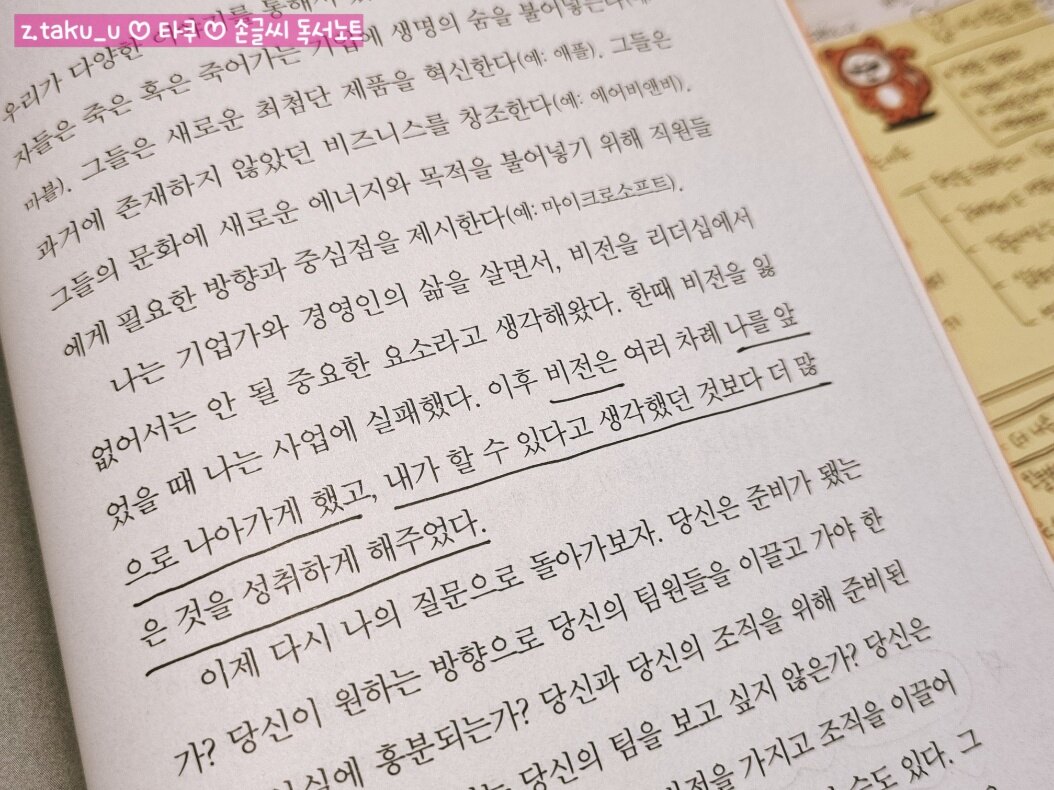 z.taku_u ♡ 타쿠 ♡ 손글씨 독서노트
우리가 다양한
자들은 죽은 혹은 죽어가는 기업에 생명의 숨을 불어넣는다(예:
마블). 그들은 새로운 최첨단 제품을 혁신한다(예: 애플). 그들은
과거에 존재하지 않았던 비즈니스를 창조한다(예: 에어비앤비).
그들의 문화에 새로운 에너지와 목적을 불어넣기 위해 직원들
에게 필요한 방향과 중심점을 제시한다(예: 마이크로소프트).
나는 기업가와 경영인의 삶을 살면서, 비전을 리더십에서
없어서는 안 될 중요한 요소라고 생각해왔다. 한때 비전을 잃
었을 때 나는 사업에 실패했다. 이후 비전은 여러 차례 나를 앞
으로 나아가게 했고, 내가 할 수 있다고 생각했던 것보다 더 많
은 것을 성취하게 해주었다.
이제 다시 나의 질문으로 돌아가보자. 당신은 준비가 됐는
가? 당신이 원하는 방향으로 당신의 팀원들을 이끌고 가야 한
흥분되는가? 당신과 당신의 조직을 위해 준비된
당신의 팀을 보고 싶지 않은가? 당신은
가지고 조직을 이끌어
수도 있다. 그